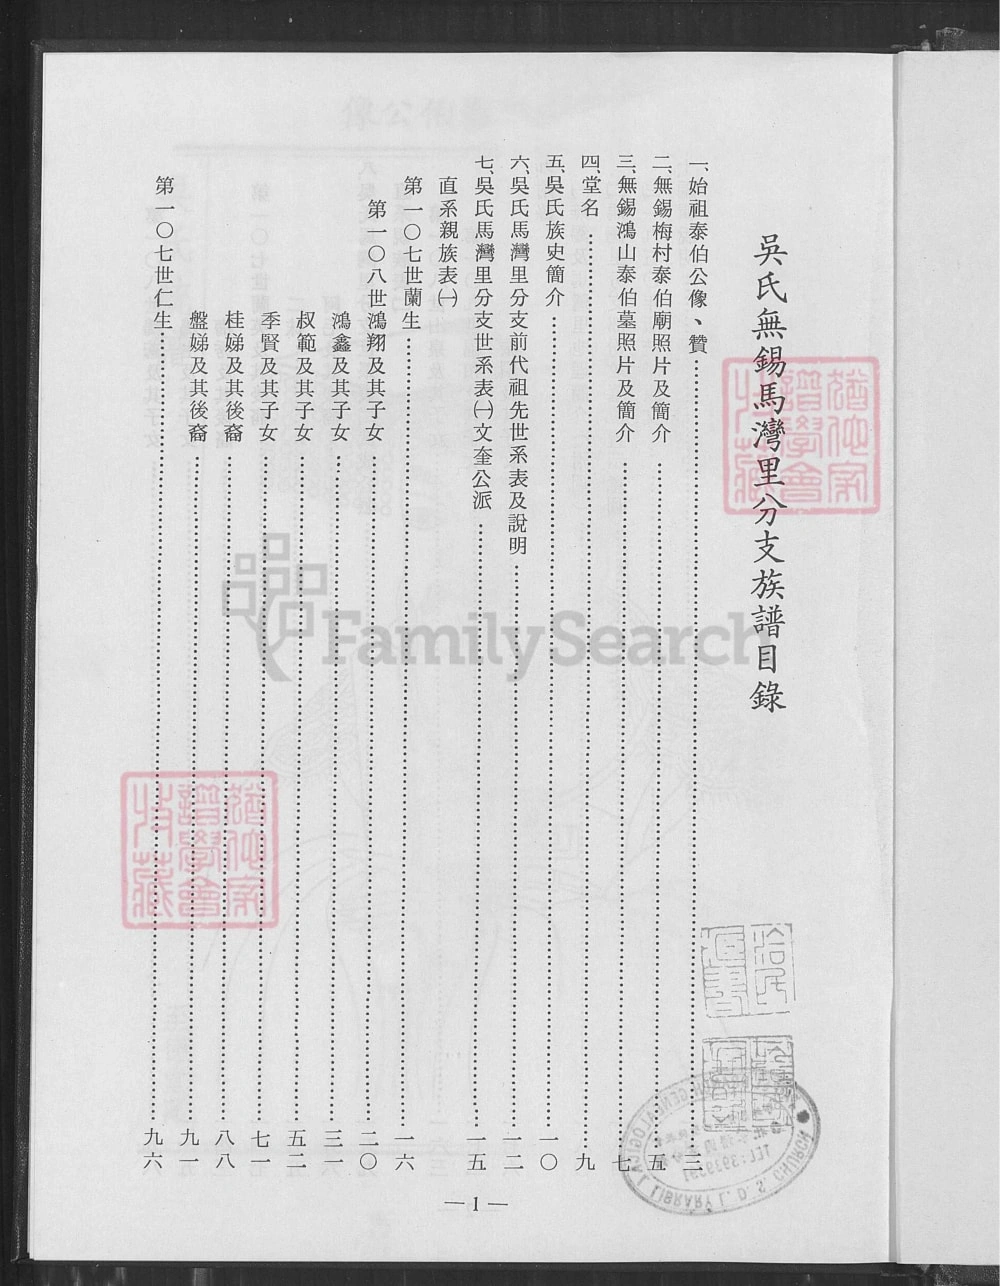 吳氏無錫馬灣里分支族譜目錄
一、始祖泰伯公像、贊……三
二、無錫梅村泰伯廟照片及簡介……五
三、無錫鴻山泰伯墓照片及簡介……七
四、堂名……九
五、吳氏族史簡介……一〇
六、吳氏馬灣里分支前代祖先世系表及說明……一二
七、吳氏馬灣里分支世系表㈠文奎公派……一五
直系親族表㈠
第一〇七世蘭生……一六
第一〇八世鴻翔及其子女……二〇
鴻鑫及其子女……三一
叔範及其子女……五二
季賢及其子女……七一
桂娣及其後裔……八八
盤娣及其後裔……九一
第一〇七世仁生……九六
—1—
FamilySearch
GENEALOGICAL LIBRARY L. D. S. CHURCH